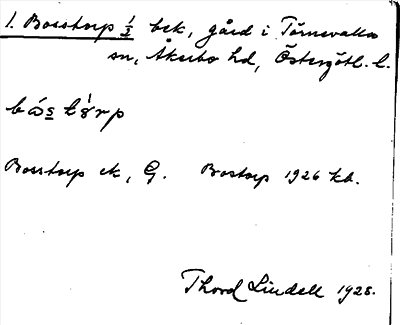 1. Bosstorp ½ bck, gård i Törnevalla
sn, Åkerbo hd, Östergötl. l.
bós tórp
Bosstorp ek, G. Bostorp 1926 kb.
Thord Lindell 1928.